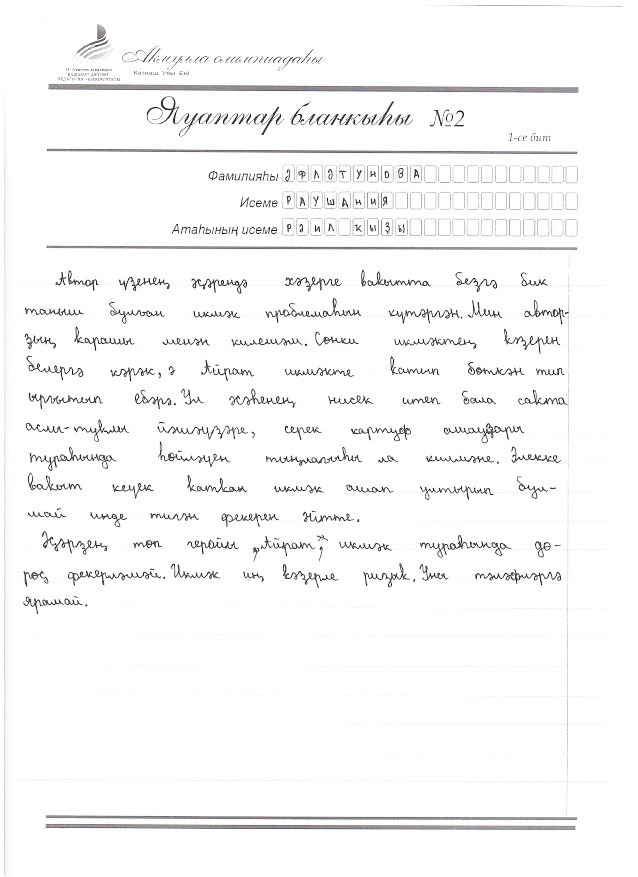 Аҡмулла олимпиадаһы
Ҡатнаш. Уҡы. Еңi
Яуаптар бланкыһы №2
1-се бит
Фамилияһы ӘФЛӘТУНОВА
Исеме РАУШАНИЯ
Атаһының исеме РӘИЛ ҠЫҘЫ
Автор үзенең әҫәрендә хәҙерге вакытта беҙгә бик
таныш булған икмәк проблемаһын күтәргән. Мин автор-
ҙың карашы менән килешәм. Сөнки икмәктең ҡәҙерен
белергә кәрәк, ә Айрат икмәкте катып бөткән тип
ырғытып ебәрә. Ул әсәһенең нисек итеп бала сакта
аслы-туклы йәшәүҙәре, серек картуф ашауҙары
тураһында һөйләүен тыңлағыһы ла килмәне. Элекке
вакыт кеүек каткан икмәк ашап ултырып бул-
май инде тигән фекерен әйтте.
Әҫәрҙең төп геройы „Айрат" икмәк тураһында дө-
рөҫ фекерләмәй. Икмәк иң ҡәҙерле ризык. Уны түләфиәргә
ярамай.